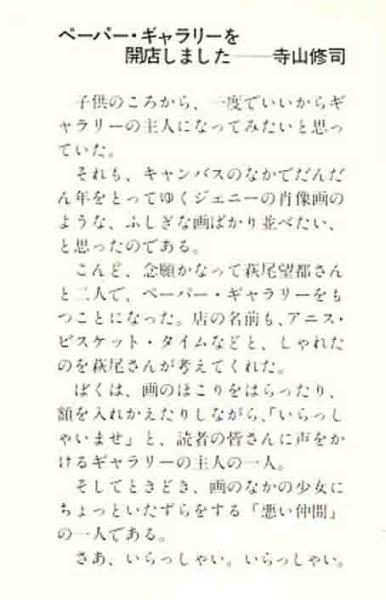 ペーパー・ギャラリーを
開店しました――寺山修司
子供のころから、一度でいいからギ
ャラリーの主人になってみたいと思っ
ていた。
それも、キャンバスのなかでだんだ
ん年をとってゆくジェニーの肖像画の
ような、ふしぎな画ばかり並べたい、
と思ったのである。
こんど、念願かなって萩尾望都さん
と二人で、ペーパー・ギャラリーをも
つことになった。店の名前も、アニス・
ビスケット・タイムなどと、しゃれた
のを萩尾さんが考えてくれた。
ぼくは、画のほこりをはらったり、
額を入れかえたりしながら、「いらっし
ゃいませ」と、読者の皆さんに声をか
けるギャラリーの主人の一人。
そしてときどき、画のなかの少女に
ちょっといたずらをする「悪い仲間」
の一人である。
さあ、いらっしゃい。いらっしゃい。